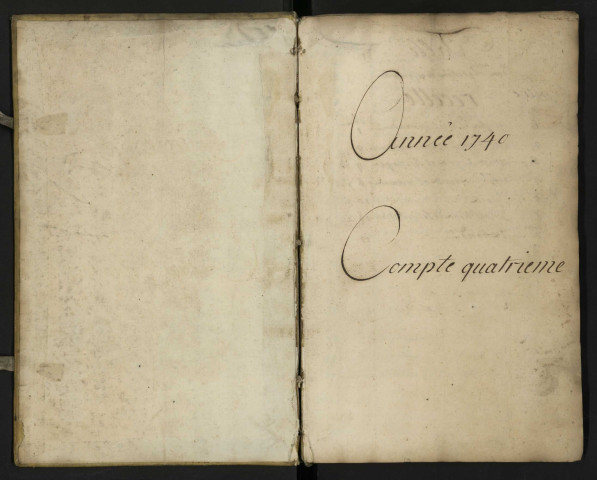 Année 1740
Compte quatrieme